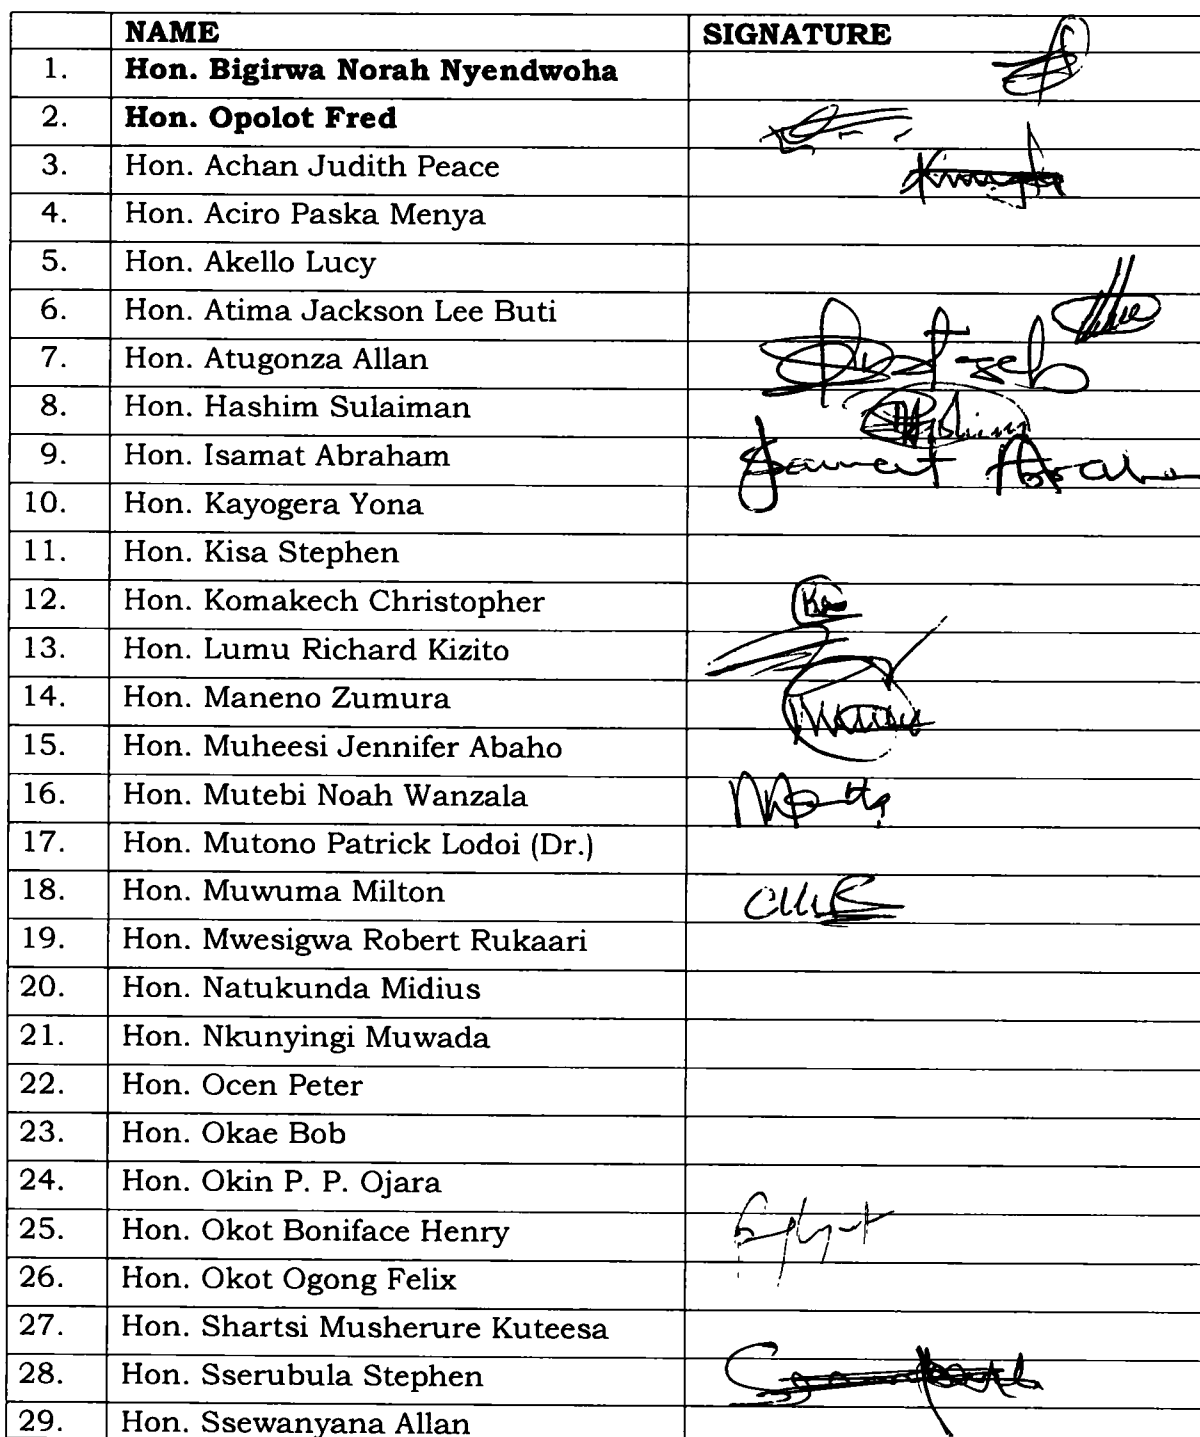 NAME SIGNATURE
1. Hon. Bigirwa Norah Nyendwoha
2. Hon. Opolot Fred
3. Hon. Achan Judith Peace
4. Hon. Aciro Paska Menya
5. Hon. Akello Lucy
6. Hon. Atima Jackson Lee Buti
7. Hon. Atugonza Allan
8. Hon. Hashim Sulaiman
9. Hon. Isamat Abraham
10. Hon. Kayogera Yona
11. Hon. Kisa Stephen
12. Hon. Komakech Christopher
13. Hon. Lumu Richard Kizito
14. Hon. Maneno Zumura
15. Hon. Muheesi Jennifer Abaho
16. Hon. Mutebi Noah Wanzala
17. Hon. Mutono Patrick Lodoi (Dr.)
18. Hon. Muwuma Milton
19. Hon. Mwesigwa Robert Rukaari
20. Hon. Natukunda Midius
21. Hon. Nkunyingi Muwada
22. Hon. Ocen Peter
23. Hon. Okae Bob
24. Hon. Okin P. P. Ojara
25. Hon. Okot Boniface Henry
26. Hon. Okot Ogong Felix
27. Hon. Shartsi Musherure Kuteesa
28. Hon. Sserubula Stephen
29. Hon. Ssewanyana Allan